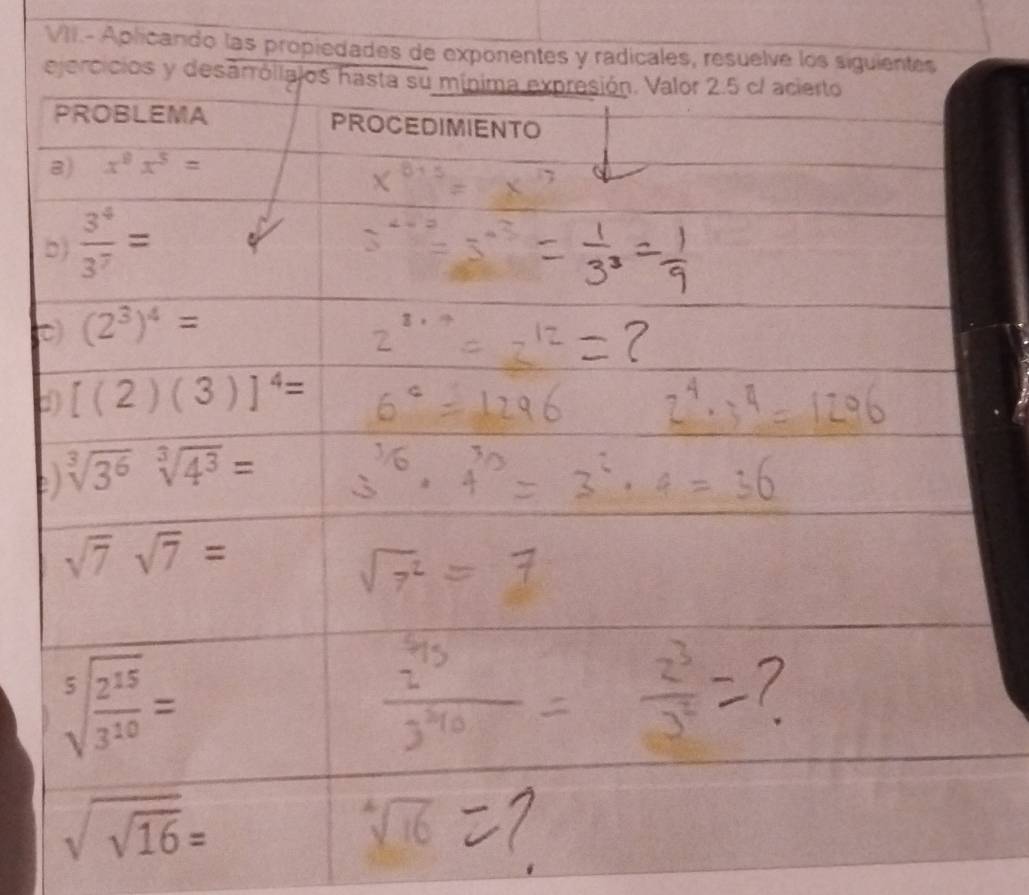 VII.- Aplicando las propiedades de exponentes y radicales, resuelve los siguientes
ejercicios y desarróllalos hasta su mínima expresión. Valor 2.5 c/ acierto
PROBLEMA PROCEDIMIENTO
a) x⁸ x⁵ = x⁸⁺⁵ = x¹³
b) 3⁴/3⁷ = = 1/3³ = 1/9
c) (2³)⁴ = = 2¹² = ?
d) [(2)(3)]⁴= 6⁴ = 1296 2⁴ · 3⁴ = 1296
e) ∛3⁶ ∛4³ = = 3² · 4 = 36
√7 √7 = √7² = 7
⁵√(2¹⁵/3¹⁰) = = 2³/3² = ?
√√16 = ⁴√16 = ?